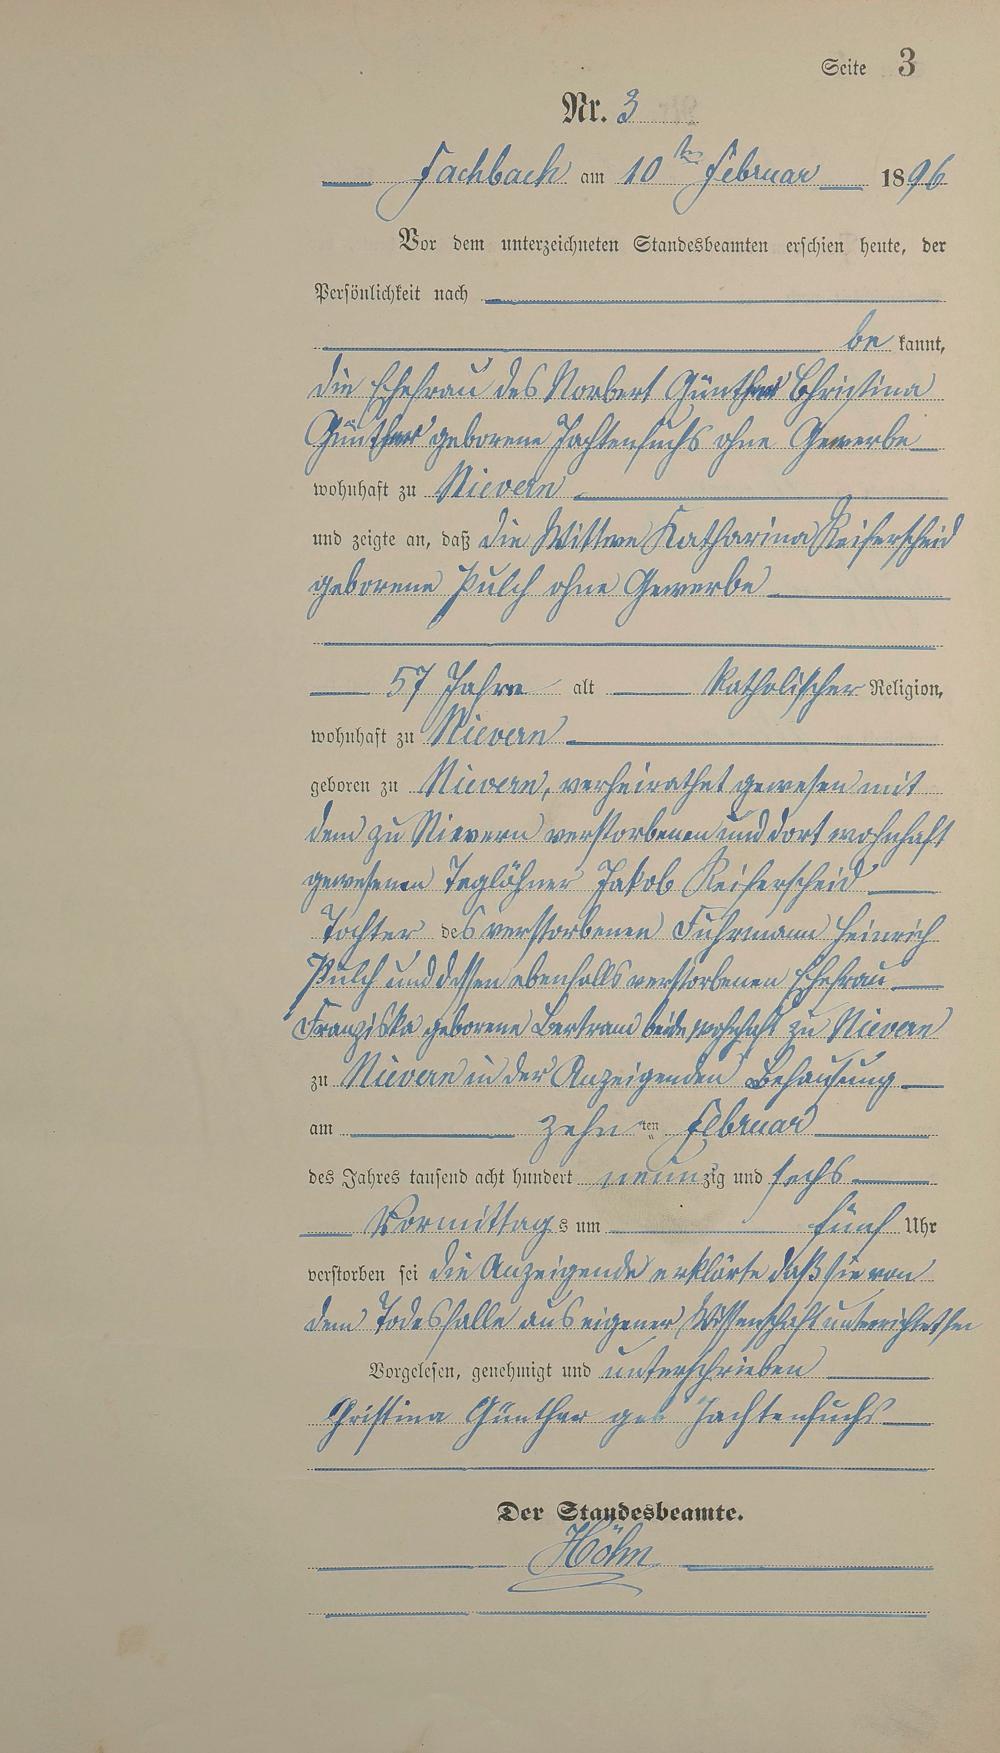 Seite 3
Nr. 3
Fachbach am 10ten Februar 1896
Vor dem unterzeichneten Standesbeamten erschien heute, der
Persönlichkeit nach
be kannt,
die Ehefrau des Norbert Günther Christina
Günther geborene Jachtenfuchs ohne Gewerbe
wohnhaft zu Nievern
und zeigte an, daß die Wittwe Katharina Reiferscheid
geborene Pulch ohne Gewerbe
57 Jahre alt Katholischer Religion,
wohnhaft zu Nievern
geboren zu Nievern, verheirathet gewesen mit
dem zu Nievern verstorbenen und dort wohnhaft
gewesenen Taglöhner Jakob Reiferscheid
Tochter des verstorbenen Fuhrmann Heinrich
Pulch und dessen ebenfalls verstorbenen Ehefrau
Franziska geborene Bertram beide wohnhaft zu Nievern
zu Nievern in der Anzeigenden Behausung
am zehnten Februar
des Jahres tausend acht hundert neunzig und sechs
Vormittags um fünf Uhr
verstorben sei die Anzeigende erklärte daß sie von
dem Todesfalle aus eigener Wissenschaft unterrichtet sei
Vorgelesen, genehmigt und unterschrieben
Christina Günther geb Jachtenfuchs
Der Standesbeamte.
Höhn